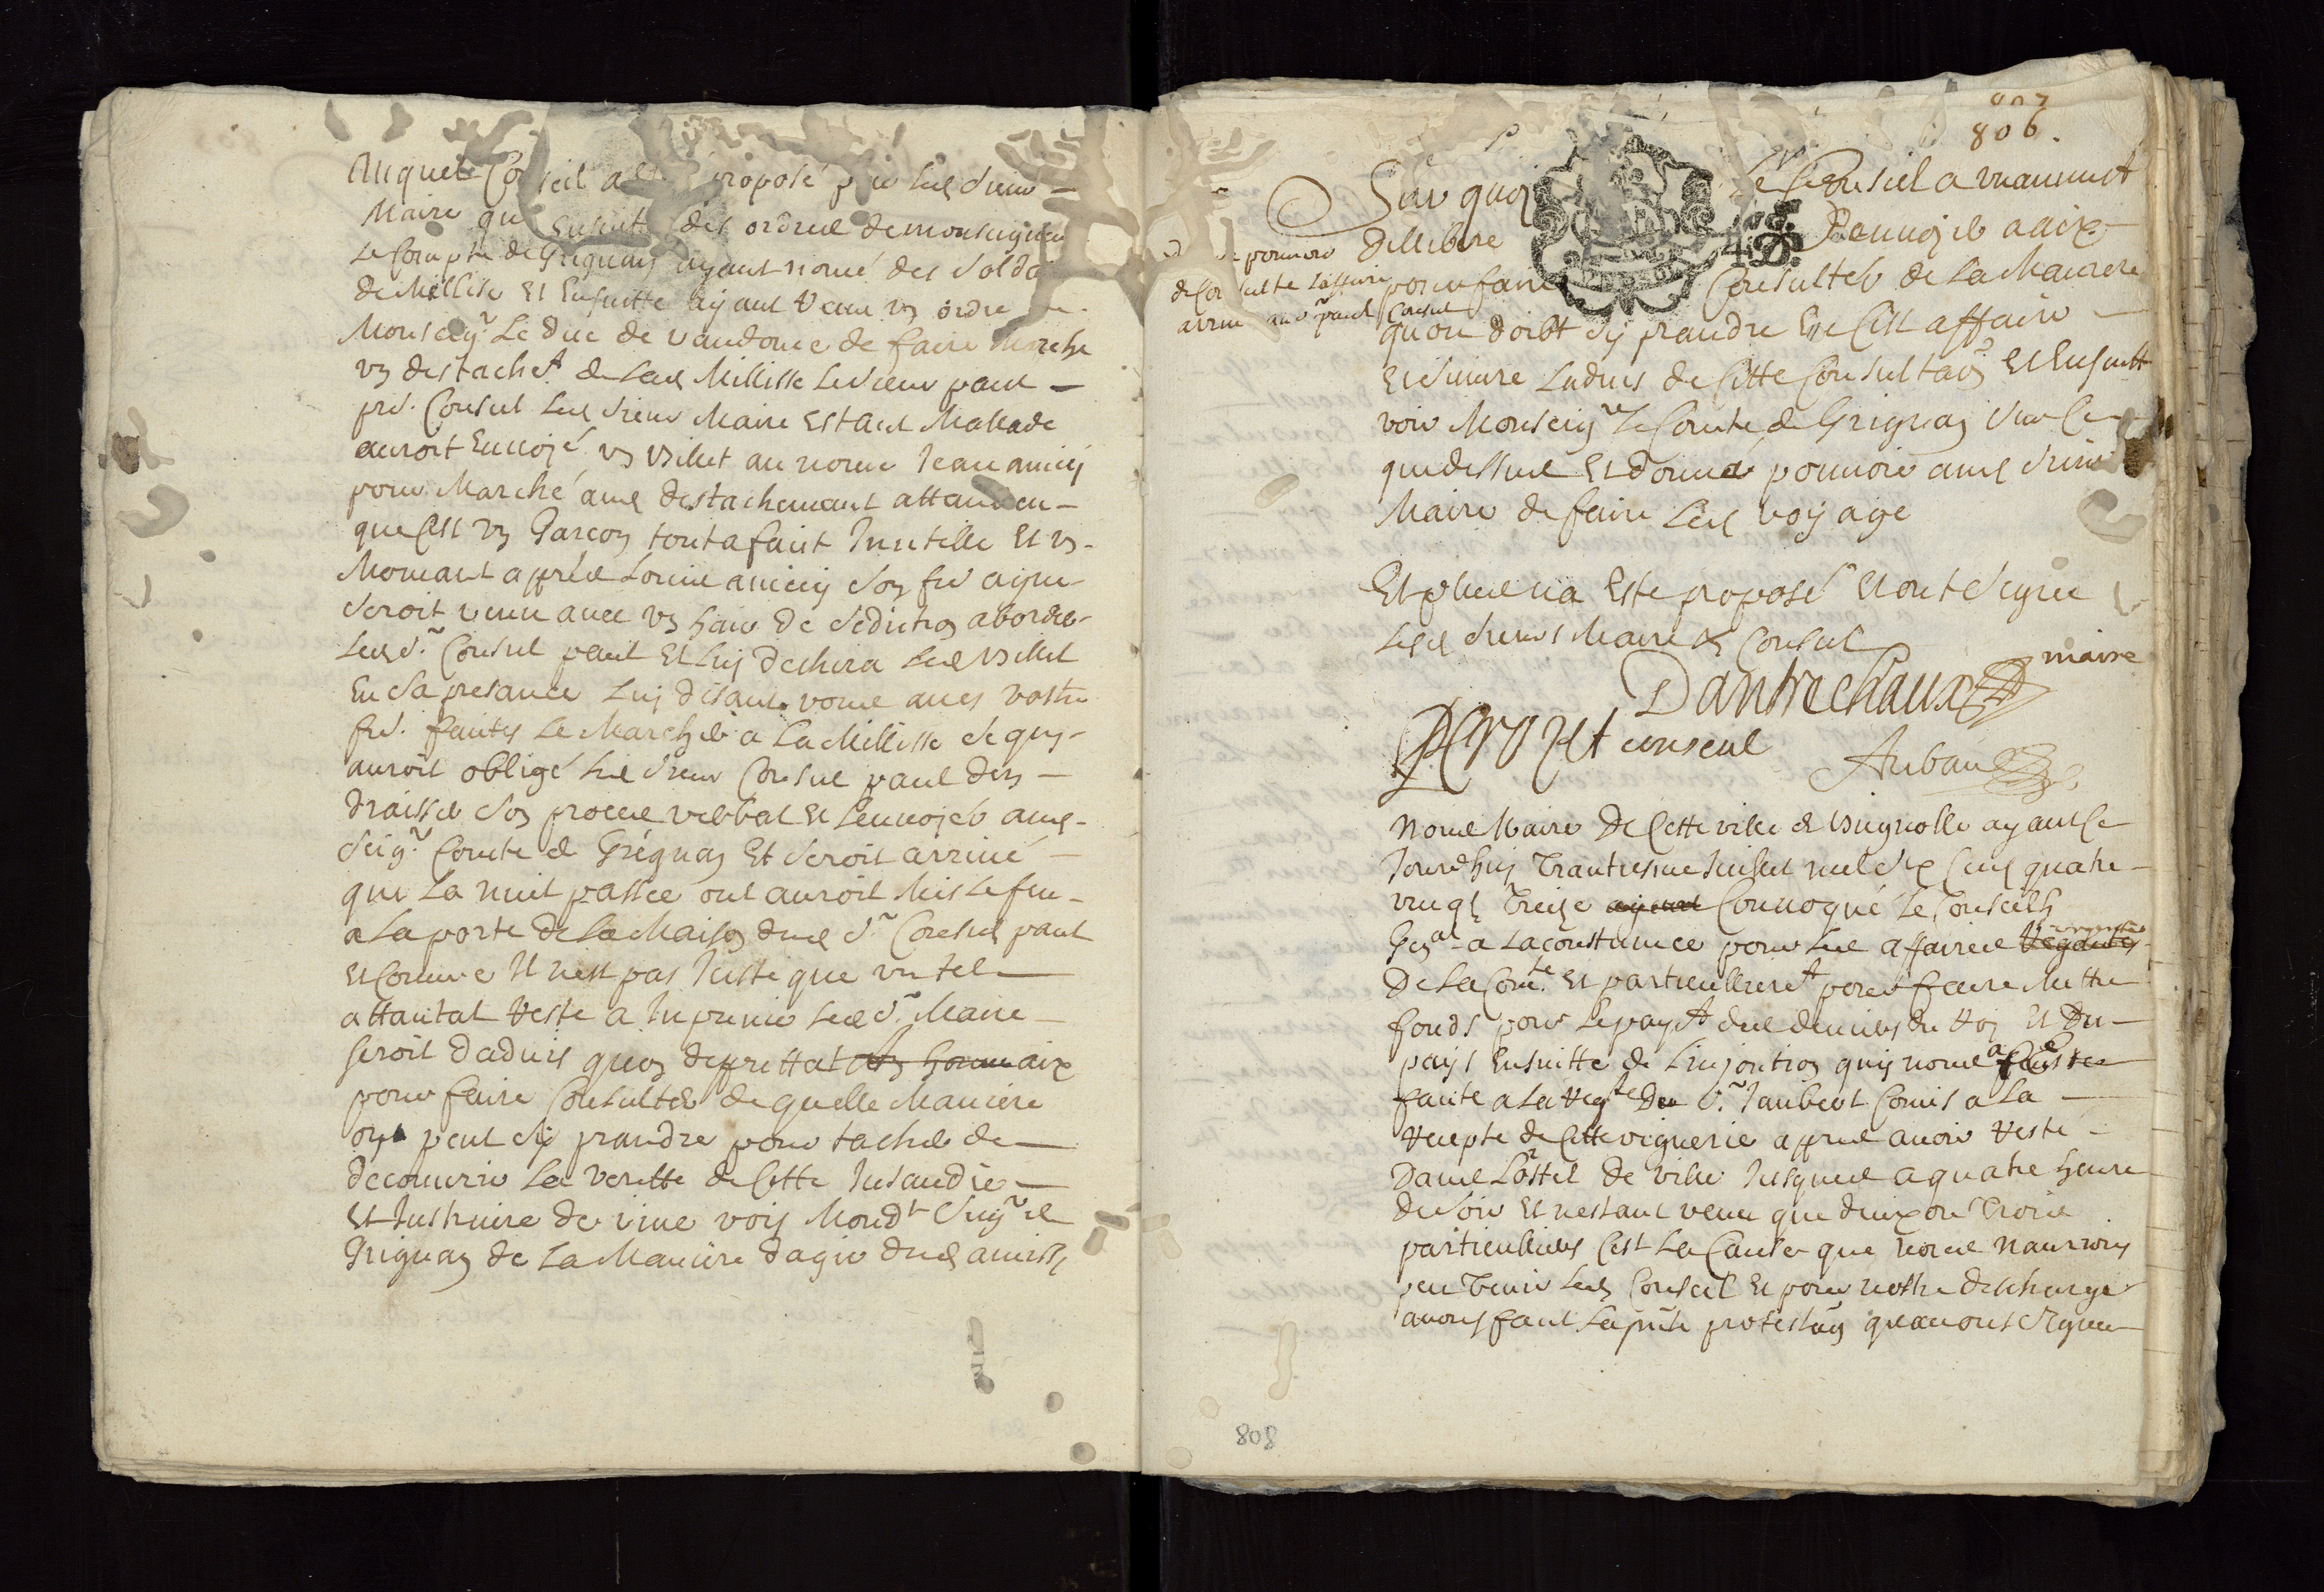 Auquel Conseil a esté proposé par led sieur
Maire que ensuite des ordres de monseigneur
Le Compte de Grignan ayant nomé des soldats
de Millise Et Ensuitte ayant venu un ordre de
Monseigr Le duc de vandome de faire marche
un destachet de lad Millisse le sieur paul
pr. Consul led sieur Maire Estant Mallade
auroit Envoyé un billet au nomé Jean amicy
pour Marché aud destachement attandeu
que C'est un Garçon tout a fait Inutille Et un
Momant apprés Louis amicy son frere aisné
seroit venu avec un hair de sedition aborder
led sr Consul paul Et luy deschira led billet
En sa presance luy disant vous aves vostre
fre. faites le Marcher a la Millisse se quy
auroit obligé led sieur Consul paul den
draisser son proces verbal Et l'envoyer aud
seigr Comte de Grignan Et seroit arrivé
que la nuit passée ont auroit Mis le feu
a la porte de la Maison dud sr Consul paul
Et Comme Il n'est pas Juste que un tel
attantat reste a Inpunis led sr Maire
seroit d'advis qu'on deputtat un homme aix
pour faire Consulter de quelle Maniere
on peut s'y prandre pour tacher de
decouvrir la veritté de Cette Insandie
Et Instruire de vive voix Mondt seigr de
Grignan de la Maniere d'agir dud amicy
807
806.
pouvoir
de Consulte l'affaire
arrivé au sr paul Consul
Sur quoy Le Conseil a unanimemt
Delibere D'envoyer a aix
pour faire Consulter de la Maniere
qu'on doibt s'y prandre En C'est affaire
Et suivre l'advis de Cette Consultaon Et Ensuitte
voir Monseigr Le Comte de Grignan sur Ce
que dessus Et donné pouvoir aud sieur
Maire de faire led voyage
Et plus n'a Esté proposé Et ont signés
lesd sieurs Maire & Consul
Dantrechaux maire
Crozet conseul
Aubau
Nous Maire De Cette ville de Brignolle ayant Ce
Jourd'huy Trantiesme Juillet mil six Cens quatre
vingt Treize ayant Convoqué Le Conseilh
Genal a la coustumee pour les affaires regantes urgentes
De la Comte. Et particullieremt pour faire Mettre
fonds pour le payet des deniers du roy Et du
pays Ensuitte de l'injontion quy nous a Esté
faite a la reqte Du sr. Jaubert Comis a la
recepte de Cette viguerie appres avoir resté
Dans L'ostel de ville Jusques a quatre heure
du soir Et n'estant venu que deux ou Trois
particulliers C'est la Cause que nous n'aurions
peu Tenir led Conseil Et pour nostre descharge
avons fait la pnte protestaon qu'avons signée
808